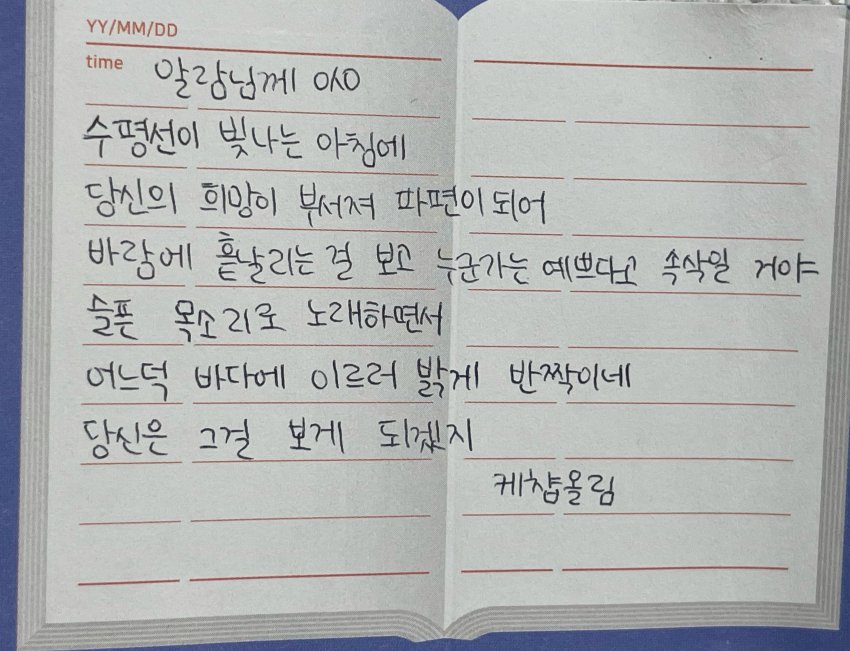 YY/MM/DD
time 알람님께 이싱
수평선이 빛나는 아침에
당신의 희망이 부서져 파편이 되어
바람에 흩날리는 걸 보고 누군가는 예쁘다고 속삭일 거야
슬픈 목소리로 노래하면서
어느덕 바다에 이르러 밝게 반짝이네
당신은 그걸 보게 되겠지
케챱올림